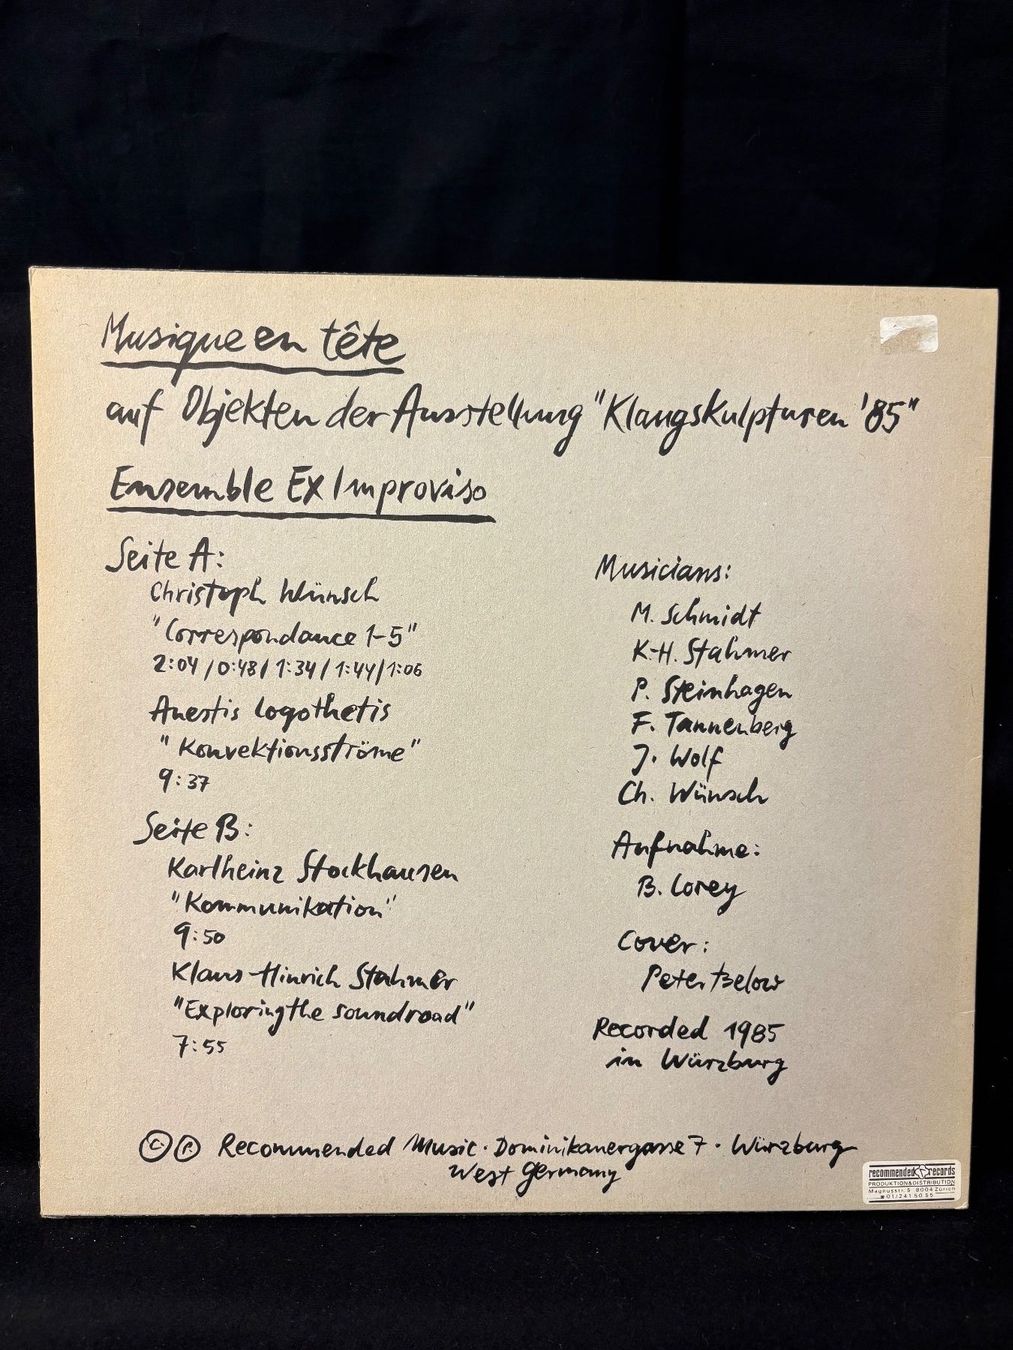 Musique en tête
auf Objekten der Ausstellung "Klangskulpturen '85"
Ensemble Ex Improviso
Seite A:
Christoph Wünsch
"Correspondance 1-5"
2:04 / 0:48 / 1:34 / 1:44 / 1:06
Anestis Logothetis
"Konvektionsströme"
9:37
Seite B:
Karlheinz Stockhausen
"Kommunikation"
9:50
Klaus-Hinrich Stahmer
"Exploring the soundroad"
7:55
Musicians:
M. Schmidt
K.-H. Stahmer
P. Steinhagen
F. Tannenberg
J. Wolf
Ch. Wünsch
Aufnahme:
B. Lorey
Cover:
Peter Below
Recorded 1985
in Würzburg
© ℗ Recommended Music · Dominikanergasse 7 · Würzburg
West Germany
recommended records
PRODUKTION & DISTRIBUTION
Magnusstr. 5 8004 Zürich
01/241 50 55